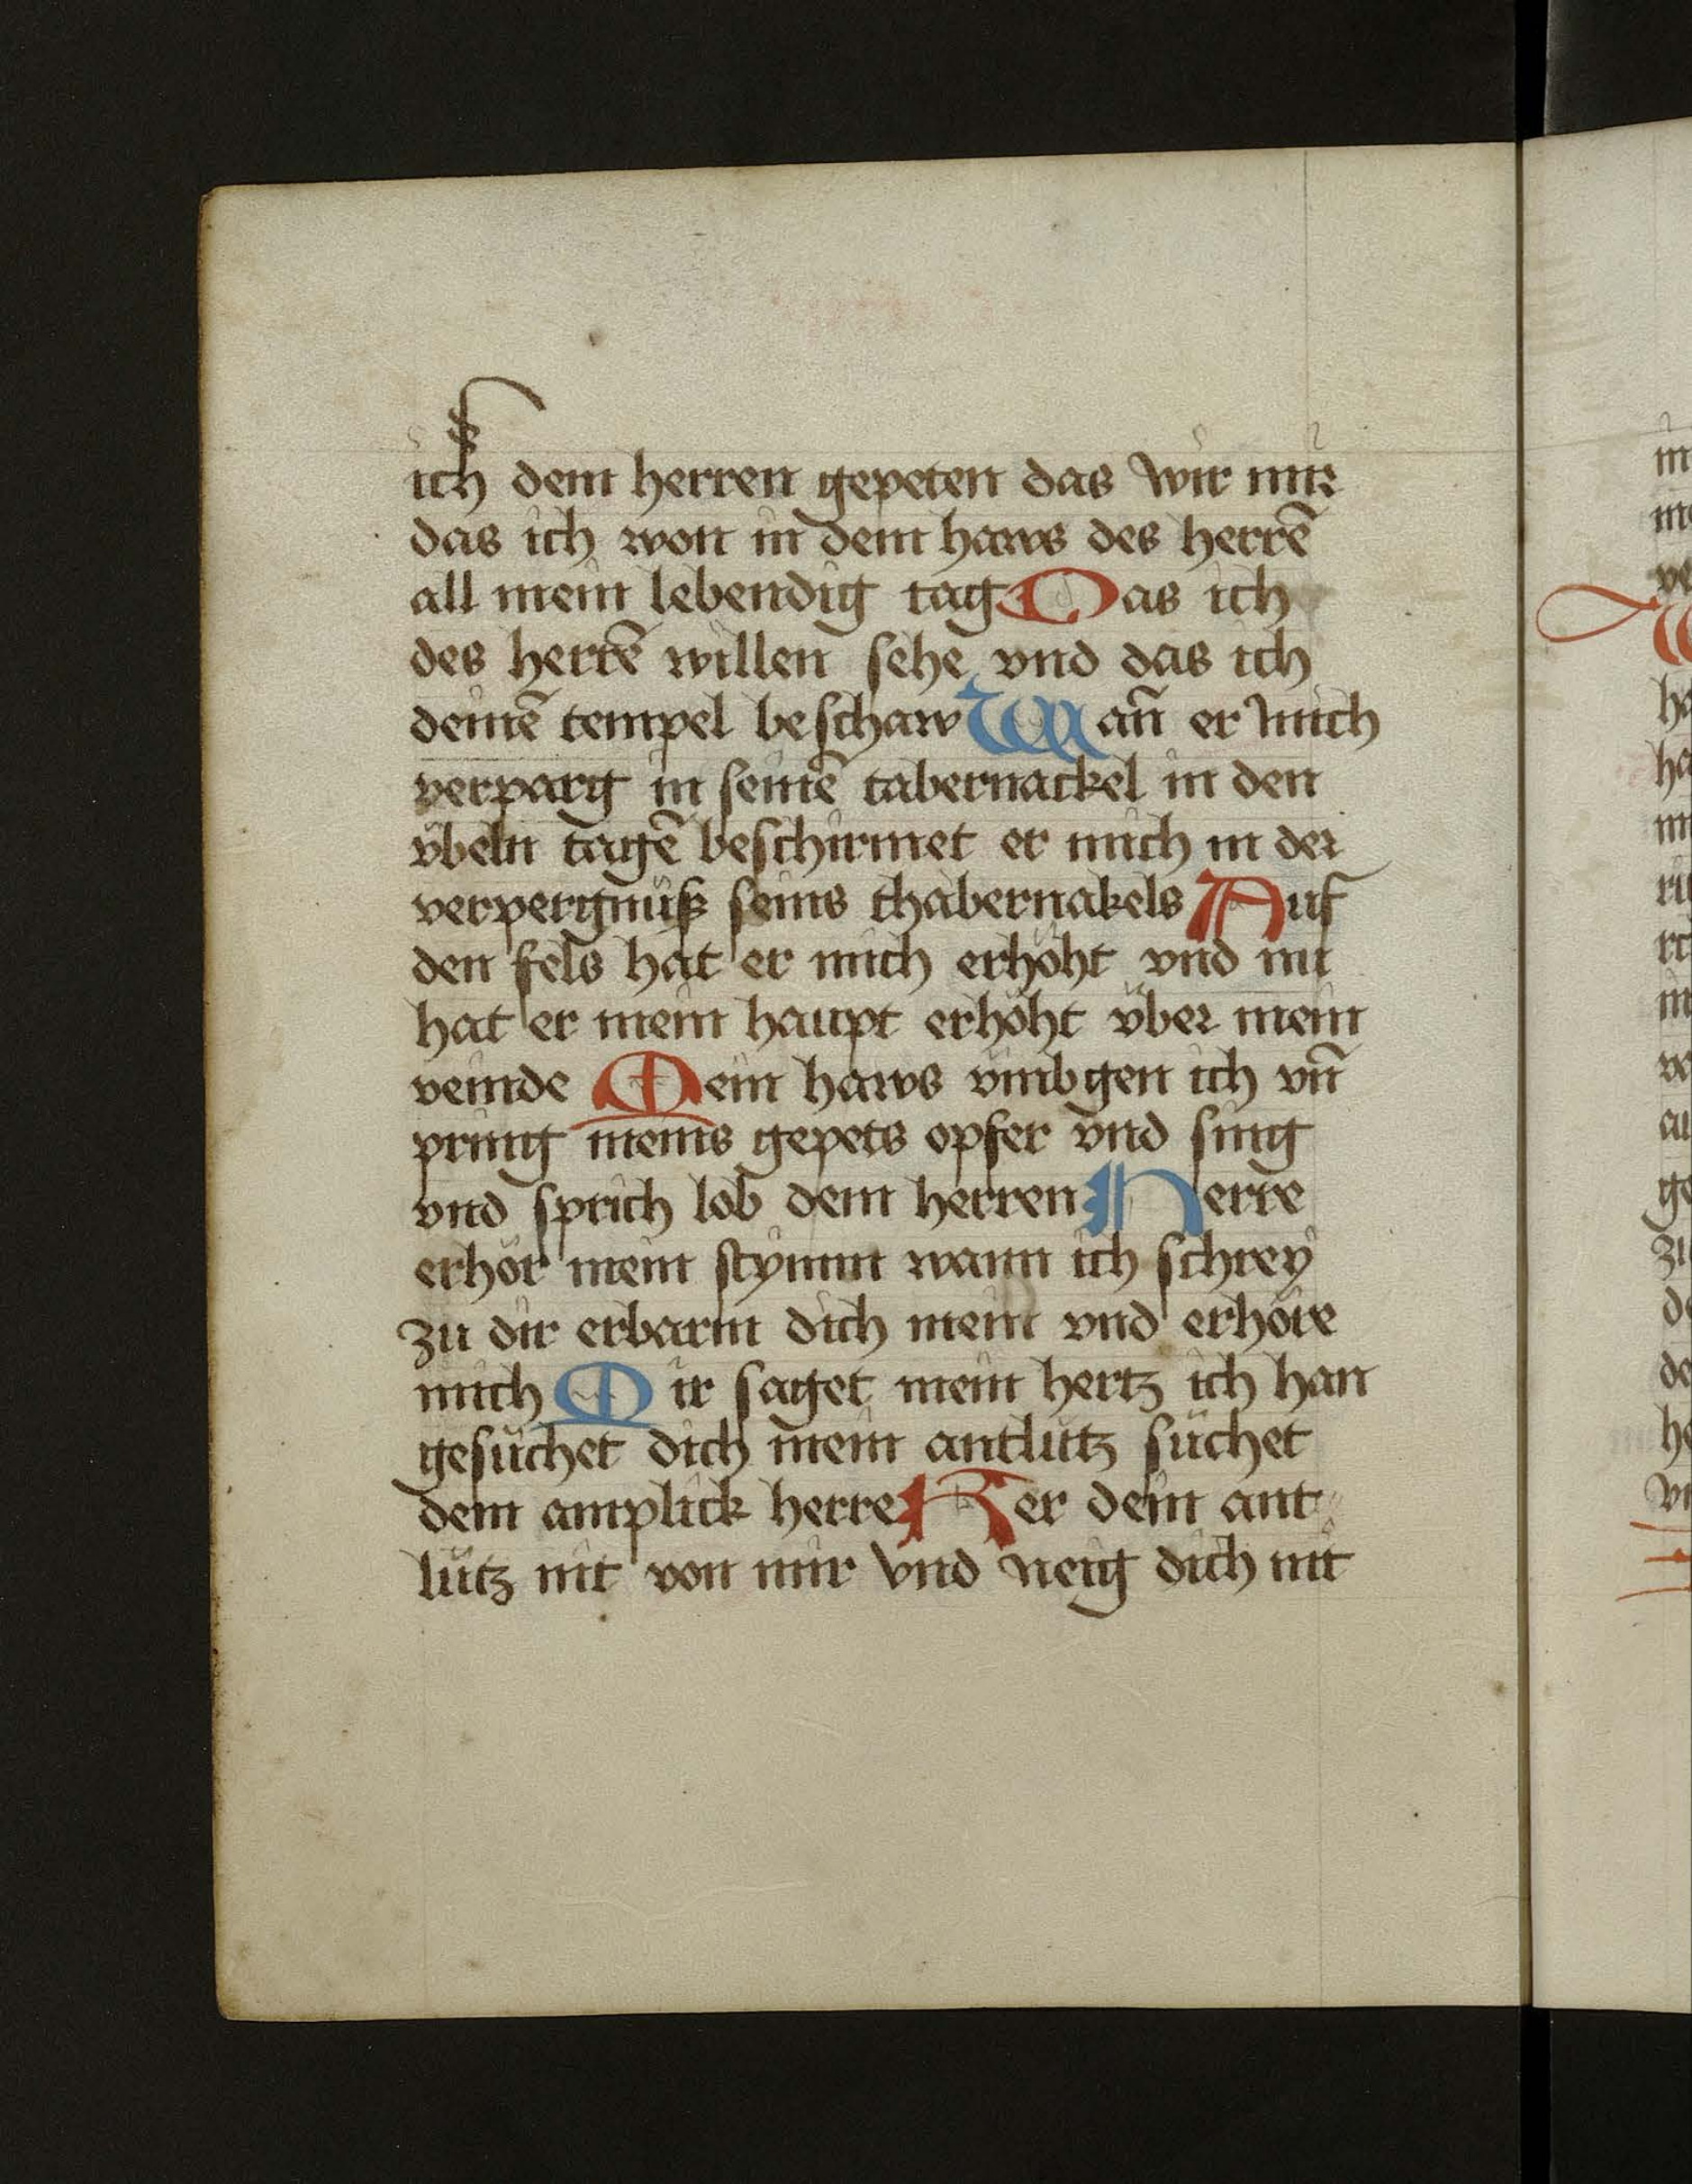 ich dem herren gepeten das wir mir
das ich won in dem haws des herrē
all mein lebendig tag Das ich
des herrē willen sehe vnd das ich
deinē tempel beschaw Wan̄ er mich
verparg in seinē tabernackel in den
vͤbeln tagē beschirmet er mich in der
verpergnüß seins thabernakels Auf
den fels hat er mich erhöht vnd nu
hat er mein haupt erhöht v̈ber mein
veinde Mein haws vmbgen ich vn̄
pring meins gepets opfer vnd sing
vnd sprich lob dem herren Herre
erhör mein stymm wann ich schrey
zu dir erbarm dich mein vnd erhöre
mich Mir saget mein hertz ich han
gesuchet dich mein antlutz suchet
dem amplick herre Ker dein ant
lütz nit von mir vnd neig dich nit